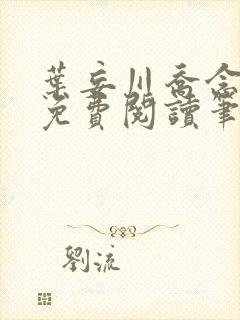 葉妄川喬念
免費閱讀筆
劉流